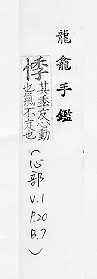 龍龕手鑑
悸其季反心動
也氣不定也
(心部 V.1 P.20 B.7)